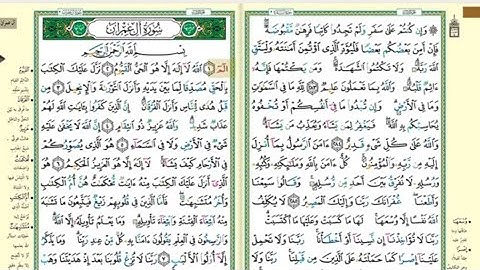 وَإِن كُنتُمْ عَلَىٰ سَفَرٍ وَلَمْ تَجِدُوا۟ كَاتِبًا فَرِهَـٰنٌ مَّقْبُوضَةٌ
فَإِنْ أَمِنَ بَعْضُكُم بَعْضًا فَلْيُؤَدِّ ٱلَّذِى ٱؤْتُمِنَ أَمَـٰنَتَهُۥ وَلْيَتَّقِ
ٱللَّهَ رَبَّهُۥ وَلَا تَكْتُمُوا۟ ٱلشَّهَـٰدَةَ وَمَن يَكْتُمْهَا فَإِنَّهُۥٓ
ءَاثِمٌ قَلْبُهُۥ وَٱللَّهُ بِمَا تَعْمَلُونَ عَلِيمٌ ٢٨٣ لِّلَّهِ مَا فِى ٱلسَّمَـٰوَٰتِ
وَمَا فِى ٱلْأَرْضِ وَإِن تُبْدُوا۟ مَا فِىٓ أَنفُسِكُمْ أَوْ تُخْفُوهُ
يُحَاسِبْكُم بِهِ ٱللَّهُ فَيَغْفِرُ لِمَن يَشَآءُ وَيُعَذِّبُ مَن يَشَآءُ
وَٱللَّهُ عَلَىٰ كُلِّ شَىْءٍ قَدِيرٌ ٢٨٤ ءَامَنَ ٱلرَّسُولُ بِمَآ أُنزِلَ
إِلَيْهِ مِن رَّبِّهِۦ وَٱلْمُؤْمِنُونَ كُلٌّ ءَامَنَ بِٱللَّهِ وَمَلَـٰٓئِكَتِهِۦ وَكُتُبِهِۦ
وَرُسُلِهِۦ لَا نُفَرِّقُ بَيْنَ أَحَدٍ مِّن رُّسُلِهِۦ وَقَالُوا۟ سَمِعْنَا
وَأَطَعْنَا غُفْرَانَكَ رَبَّنَا وَإِلَيْكَ ٱلْمَصِيرُ ٢٨٥ لَا يُكَلِّفُ
ٱللَّهُ نَفْسًا إِلَّا وُسْعَهَا لَهَا مَا كَسَبَتْ وَعَلَيْهَا مَا ٱكْتَسَبَتْ
رَبَّنَا لَا تُؤَاخِذْنَآ إِن نَّسِينَآ أَوْ أَخْطَأْنَا رَبَّنَا وَلَا تَحْمِلْ
سُورَةُ آلِ عِمْرَان
بِسْمِ ٱللَّهِ ٱلرَّحْمَـٰنِ ٱلرَّحِيمِ
الٓمٓ ١ ٱللَّهُ لَآ إِلَـٰهَ إِلَّا هُوَ ٱلْحَىُّ ٱلْقَيُّومُ ٢ نَزَّلَ عَلَيْكَ ٱلْكِتَـٰبَ
بِٱلْحَقِّ مُصَدِّقًا لِّمَا بَيْنَ يَدَيْهِ وَأَنزَلَ ٱلتَّوْرَىٰةَ وَٱلْإِنجِيلَ ٣ مِن
قَبْلُ هُدًى لِّلنَّاسِ وَأَنزَلَ ٱلْفُرْقَانَ إِنَّ ٱلَّذِينَ كَفَرُوا۟ بِـَٔايَـٰتِ ٱللَّهِ لَهُمْ
عَذَابٌ شَدِيدٌ وَٱللَّهُ عَزِيزٌ ذُو ٱنتِقَامٍ ٤ إِنَّ ٱللَّهَ لَا يَخْفَىٰ عَلَيْهِ
شَىْءٌ فِى ٱلْأَرْضِ وَلَا فِى ٱلسَّمَآءِ ٥ هُوَ ٱلَّذِى يُصَوِّرُكُمْ
فِى ٱلْأَرْحَامِ كَيْفَ يَشَآءُ لَآ إِلَـٰهَ إِلَّا هُوَ ٱلْعَزِيزُ ٱلْحَكِيمُ ٦ هُوَ
ٱلَّذِىٓ أَنزَلَ عَلَيْكَ ٱلْكِتَـٰبَ مِنْهُ ءَايَـٰتٌ مُّحْكَمَـٰتٌ هُنَّ أُمُّ ٱلْكِتَـٰبِ
وَأُخَرُ مُتَشَـٰبِهَـٰتٌ فَأَمَّا ٱلَّذِينَ فِى قُلُوبِهِمْ زَيْغٌ فَيَتَّبِعُونَ مَا تَشَـٰبَهَ
مِنْهُ ٱبْتِغَآءَ ٱلْفِتْنَةِ وَٱبْتِغَآءَ تَأْوِيلِهِۦ وَمَا يَعْلَمُ تَأْوِيلَهُۥٓ إِلَّا ٱللَّهُ
وَٱلرَّٰسِخُونَ فِى ٱلْعِلْمِ يَقُولُونَ ءَامَنَّا بِهِۦ كُلٌّ مِّنْ عِندِ رَبِّنَا وَمَا يَذَّكَّرُ
إِلَّآ أُو۟لُوا۟ ٱلْأَلْبَـٰبِ ٧ رَبَّنَا لَا تُزِغْ قُلُوبَنَا بَعْدَ إِذْ هَدَيْتَنَا وَهَبْ